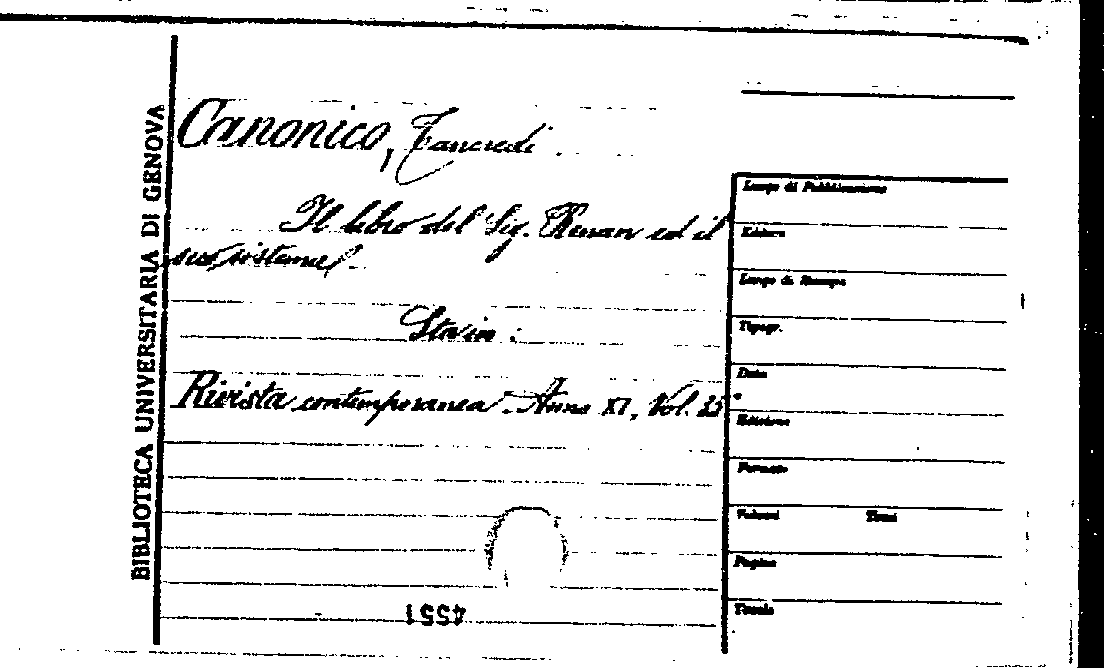 BIBLIOTECA UNIVERSITARIA DI GENOVA
Canonico, Tancredi.
Il libro del Sig. Renan ed il
suo sistema
Sta in:
Rivista contemporanea. Anno XI, Vol. 35°
Luogo di Pubblicazione
Editore
Luogo di Stampa
Tipogr.
Data
Edizione
Formato
Volumi Tomi
Pagine
Tavole
4551